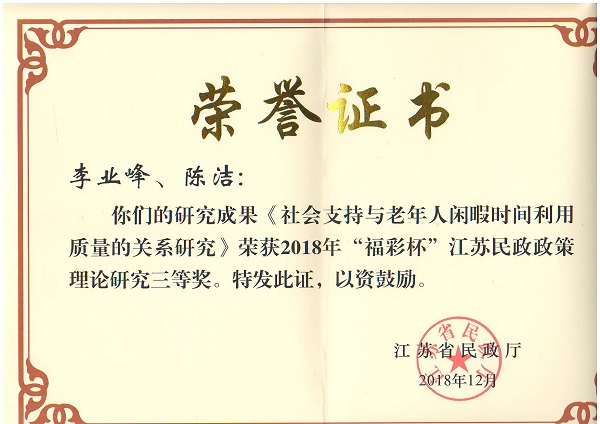 荣誉证书
李业峰、陈洁：
你们的研究成果《社会支持与老年人闲暇时间利用
质量的关系研究》荣获2018年“福彩杯”江苏民政政策
理论研究三等奖。特发此证，以资鼓励。
江苏省民政厅
江苏省民政厅
2018年12月